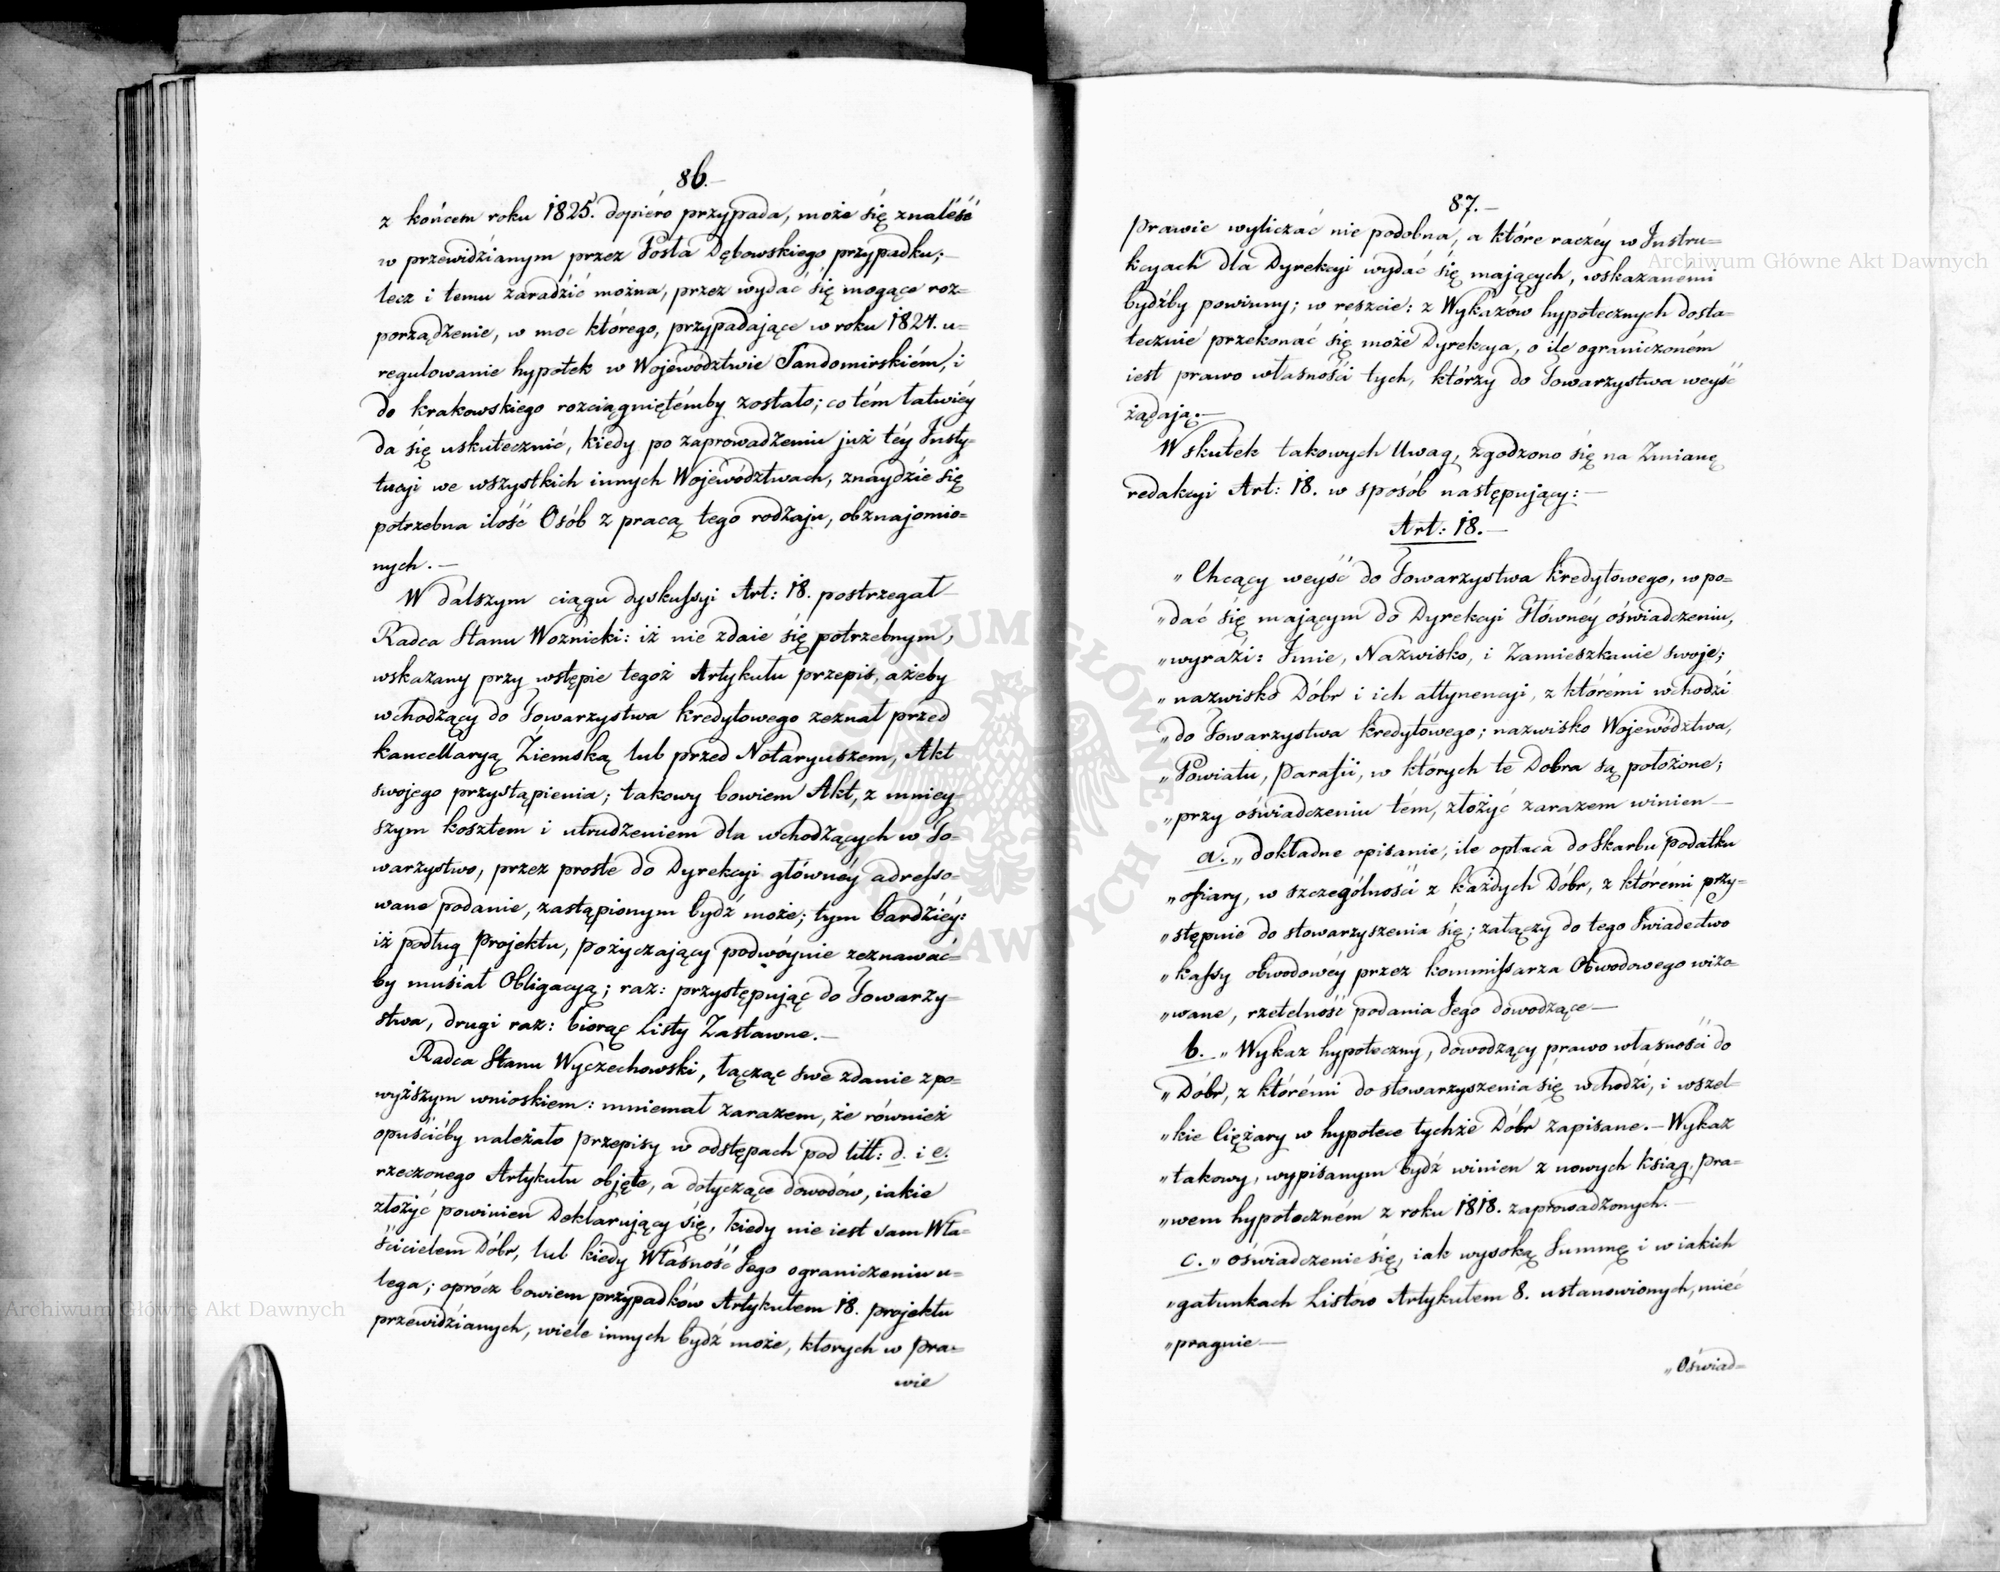 86.—
z końcem roku 1825. dopiéro przypada, może się znaleść
w przewidzianym przez Posła Dębowskiego przypadku;—
lecz i temu zaradzić można, przez wydać się mogące roz=
porządzenie, w moc którego, przypadające w roku 1824. u=
regulowanie hypotek w Województwie Sandomirskiém, i
do krakowskiego rozciągniętémby zostało; co tém łatwiéy
da się uskutecznić, kiedy po zaprowadzeniu już téy Insty=
tucyi we wszystkich innych Województwach, znaydzie się
potrzebna ilość Osób z pracą tego rodzaju, obznajomio=
nych.—
W dalszym ciągu dyskussyi Art: 18. postrzegał
Radca Stanu Woznicki: iż nie zdaie się potrzebnym,
wskazany przy wstępie tegoż Artykułu przepis, ażeby
wchodzący do Towarzystwa kredytowego zeznał przed
kancellaryą Ziemską lub przed Notaryuszem, Akt
swojego przystąpienia; takowy bowiem Akt, z mniey
szym kosztem i utrudzeniem dla wchodzących w To=
warzystwo, przez proste do Dyrekcyi głównéy adresso=
wane podanie, zastąpionym bydź może; tym bardziéy:
iż podług Projektu, pożyczający podwóynie zeznawać=
by musiał Obligacyą; raz: przystępując do Towarzy=
stwa, drugi raz: biorąc Listy Zastawne.—
Radca Stanu Wyczechowski, łącząc swe zdanie z po=
wyższym wnioskiem: mniemał zarazem, że również
opuścićby należało przepisy w odstępach pod litt: d. i e.
rzeczonego Artykułu objęte, a dotyczące dowodów, iakie
złożyć powinien Deklarujący się, kiedy nie iest sam Wła=
ścicielem Dóbr, lub kiedy Własność Jego ograniczeniu u=
lega; oprócz bowiem przypadków Artykułem 18. projektu
przewidzianych, wiele innych bydź może, ktorych w pra=
wie
87.—
Prawie wyliczać nie podobna, a które raczéy w Instru=
kcyach dla Dyrekcyi wydać się mających, wskazanemi
bydźby powinny; w reszcie: z Wykazów hypotecznych dosta=
tecznie przekonać się może Dyrekcya, o ile ograniczoném
iest prawo własności tych, którzy do Towarzystwa weyść
żądają.—
W skutek takowych Uwag, zgodzono się na Zmianę
redakcyi Art: 18. w sposób następujący:—
Art: 18.—
„Chcący weyść do Towarzystwa kredytowego, w po=
„dać się mającym do Dyrekcyi Głównéy oświadczeniu,
„wyrazi: Imie, Nazwisko, i Zamieszkanie swoje;
„nazwisko Dóbr i ich attynencyi, z którémi wchodzi
„do Towarzystwa kredytowego; nazwisko Województwa,
„Powiatu, Parafii, w których te Dobra są położone;
„przy oświadczeniu tém, złożyć zarazem winien—
a. „dokładne opisanie, ile opłaca do Skarbu podatku
„ofiary, w szczególności z każdych Dóbr, z którémi przy=
„stępnie do stowarzyszenia się; załączy do tego Świadectwo
„kassy obwodowéy przez kommissarza Obwodowego wizo=
„wane, rzetelność podania Jego dowodzące—
b. „Wykaz hypoteczny, dowodzący prawo własności do
„Dóbr, z którémi do stowarzyszenia się wchodzi, i wszel=
„kie Ciężary w hypotece tychże Dóbr zapisane.— Wykaz
„takowy, wypisanym bydź winien z nowych ksiąg, Pra=
„wem hypoteczném z roku 1818. zaprowadzonych.—
c. „oświadczenie się, iak wysoką Summę i w iakich
„gatunkach Listów Artykułem 8. ustanowionych, mieć
„pragnie—
„Oświad=
Archiwum Główne Akt Dawnych
Archiwum Główne Akt Dawnych
ARCHIWUM GŁÓWNE AKT DAWNYCH